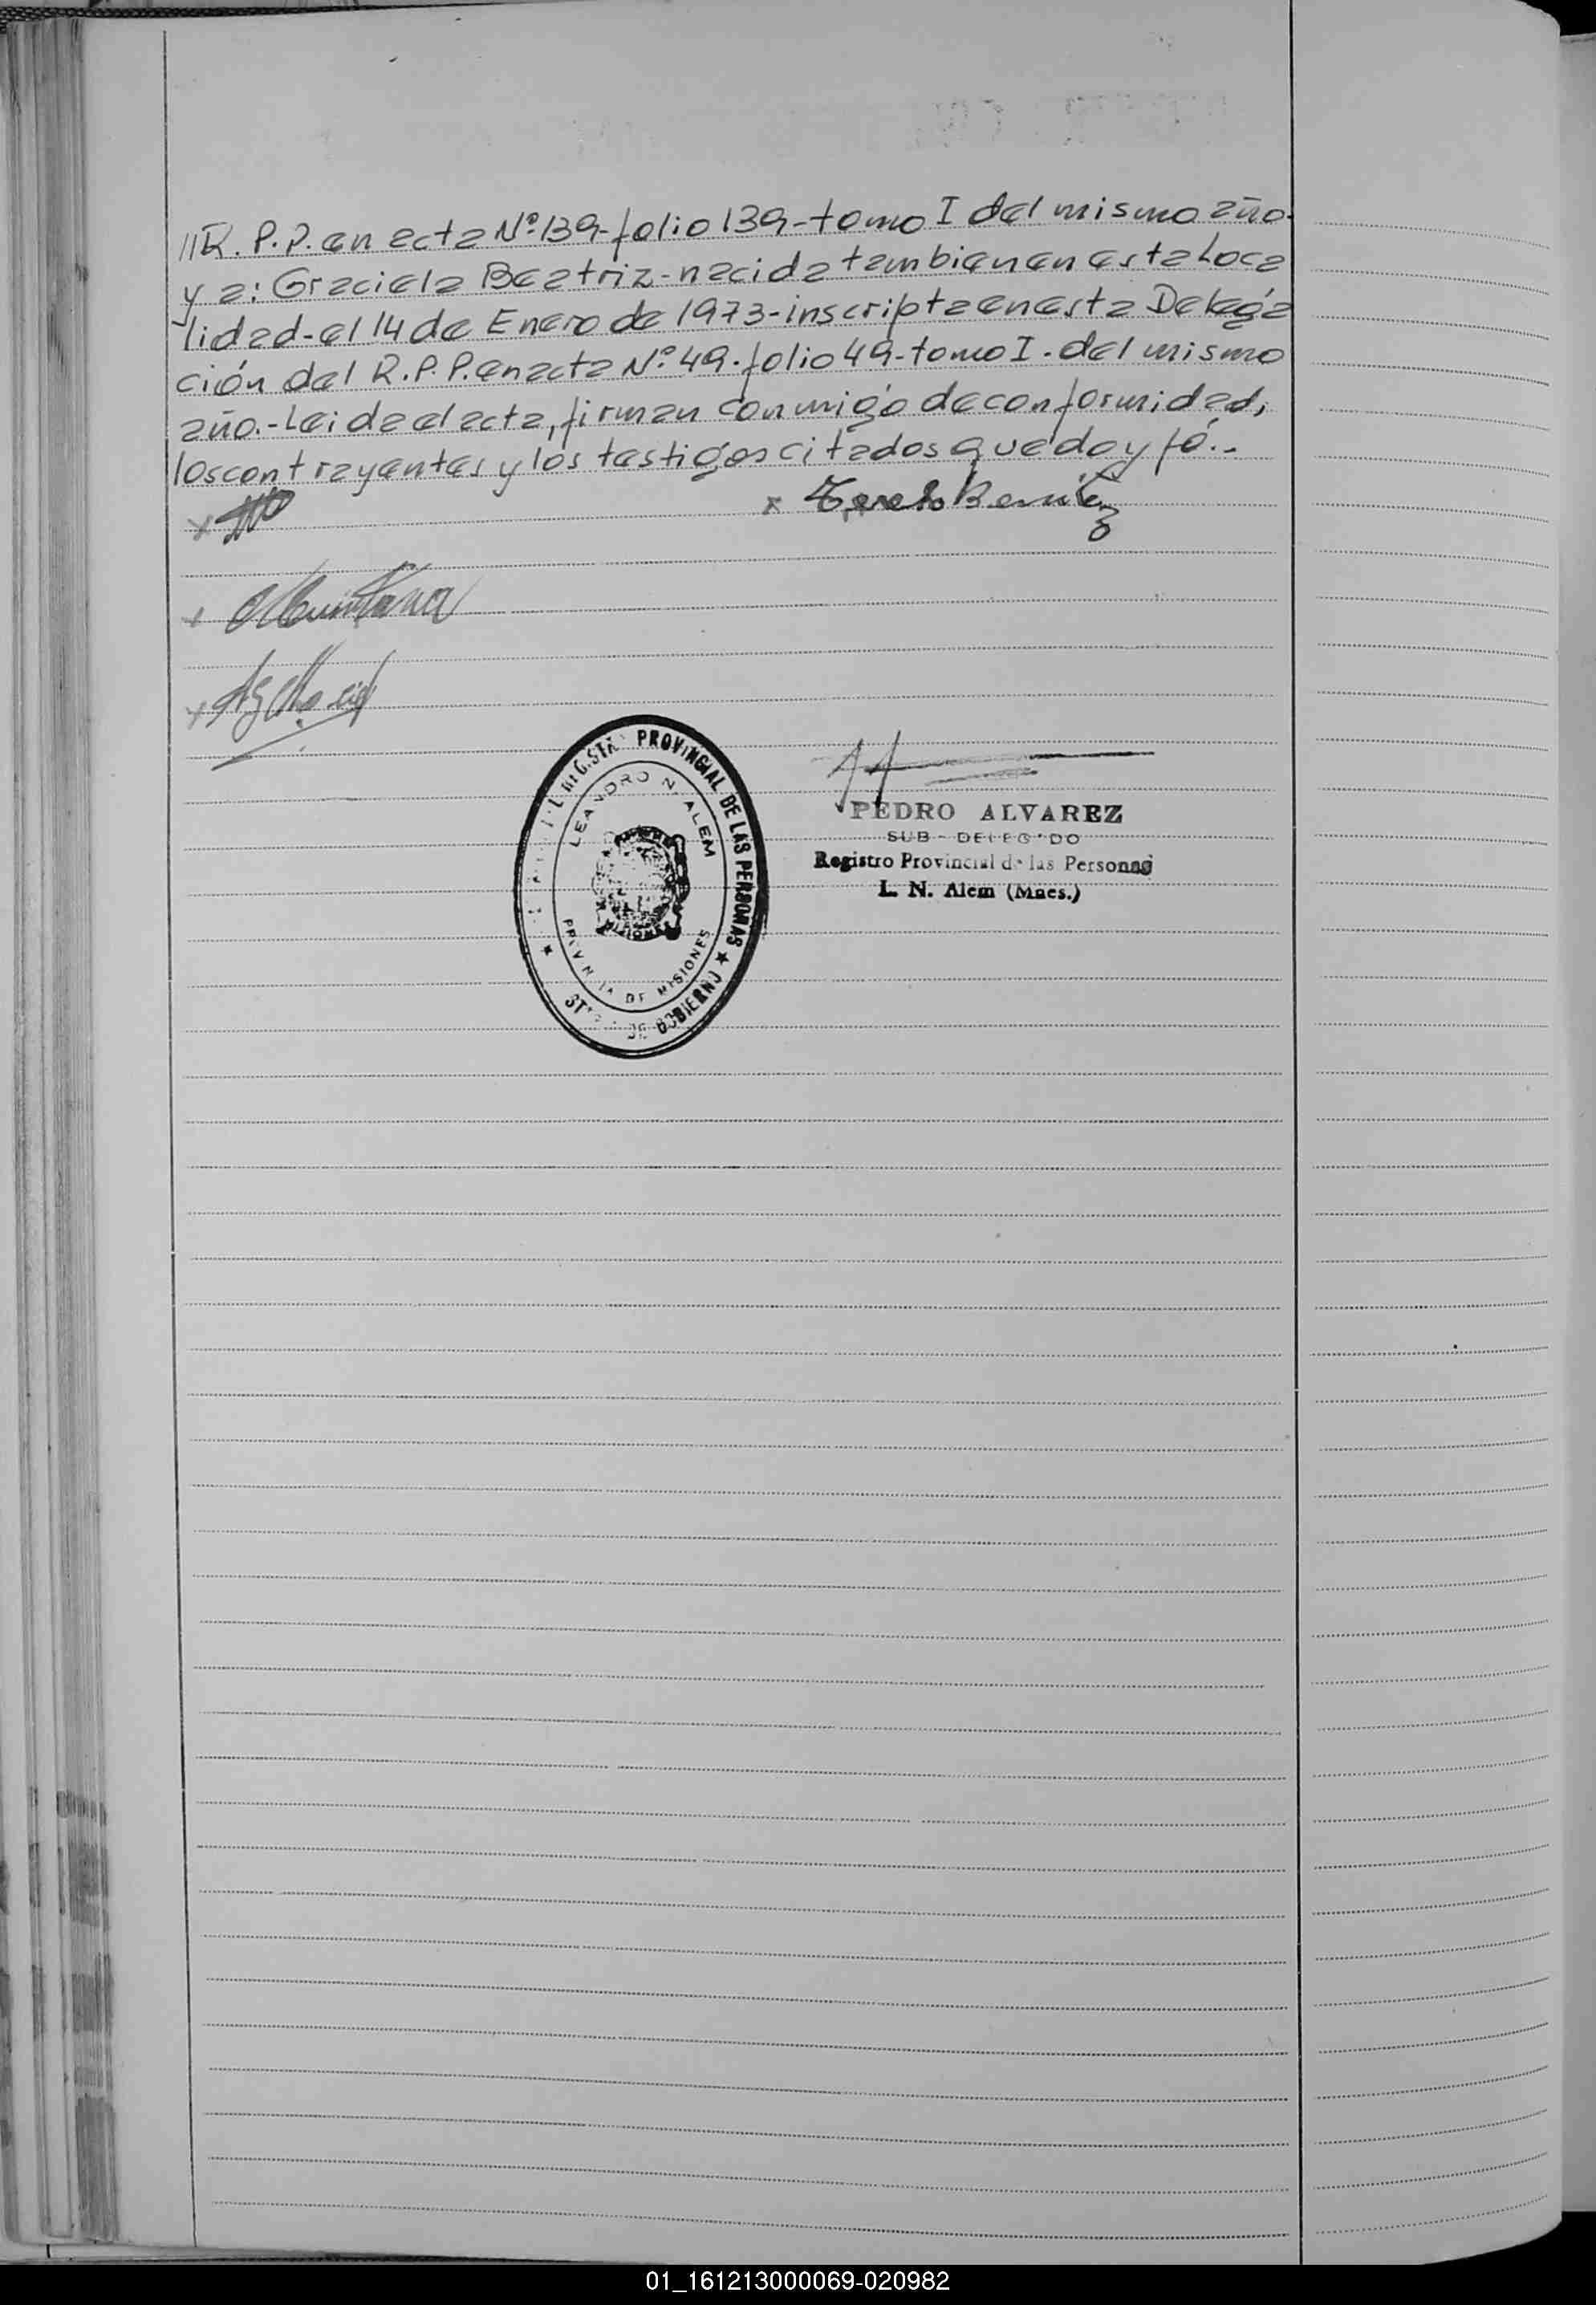 //R. P. P. en acta Nº 139-folio 139-tomo I del mismo año-
y a: Graciela Beatriz-nacida tambien en esta Loca
lidad-el 14 de Enero de 1973-inscripta en esta Delega
ción del R. P. P. en acta Nº 49-folio 49-tomo I-del mismo
año.-Leida el acta, firman conmigo de conformidad,
los contrayentes y los testigos citados que doy fé.-
x
x Benitez
x Quintana
x
PROVINCIAL DE LAS PERSONAS
LEANDRO N. ALEM
DE MISIONES
DE GOBIERNO
PEDRO ALVAREZ
SUB-DELEGADO
Registro Provincial de las Personas
L. N. Alem (Mnes.)
01_161213000069-020982